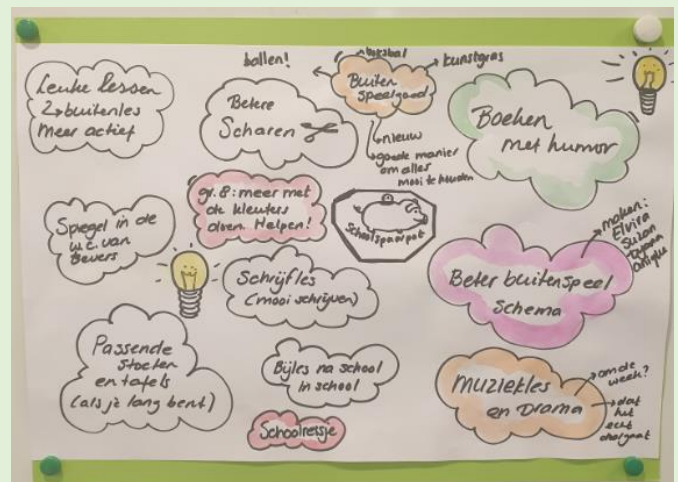 Leuke lessen
↳ buitenles
Meer actief
ballen!
Betere
Scharen
Buiten
speelgoed
kunstgras
↳ nieuw
↳ goede manier
om alles
mooi te houden
Boeken
met humor
gr. 8: meer met
de kleuters
doen. Helpen!
Schoolspaarpot
Spiegel in de
w.c. van
Bevers
Schrijfles
(mooi schrijven)
Beter buitenspeel
schema
maken:
Elvira
Suzan
Passende
stoelen
en tafels
(als je lang bent)
Bijles na school
in school
Schoolreisje
Muziekles
en Drama
om de
week?
dat
het
echt
doorgaat